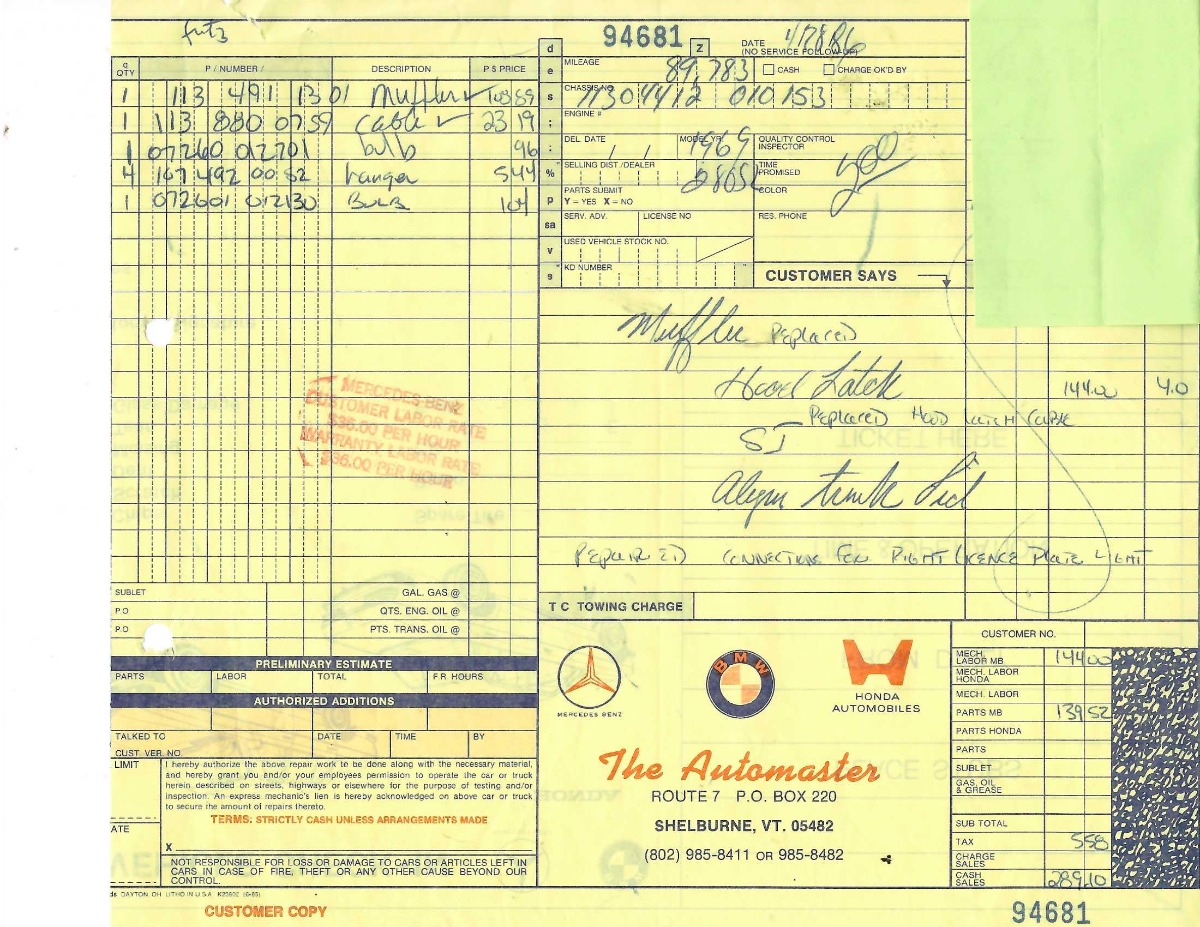 94681
d
Z
DATE 1/28/86
(NO SERVICE FOLLOW-UP)
q QTY P / NUMBER / DESCRIPTION P S PRICE
1 113 491 13 01 Muffler 108 89
1 113 880 07 59 Cable 23 19
1 07260 012701 bulb 96
4 107 492 00 82 hanger 5 44
1 072601 012130 BULB 1 04
e MILEAGE 89,783 CASH CHARGE OK'D BY
s CHASSIS NO. 11304412 010153
: ENGINE #
: DEL DATE / / MODEL YR. 1969 QUALITY CONTROL INSPECTOR
% SELLING DIST /DEALER TIME PROMISED 500
p PARTS SUBMIT Y = YES X = NO COLOR
sa SERV. ADV. LICENSE NO RES. PHONE
v USED VEHICLE STOCK NO.
9 KD NUMBER CUSTOMER SAYS
Muffler REPLACED
Hood Latch 144.00 4.0
REPLACED HOOD LATCH CABLE
SI
Align trunk lid
REPAIRED CONNECTION FOR RIGHT LICENCE PLATE LIGHT
MERCEDES-BENZ
CUSTOMER LABOR RATE
$36.00 PER HOUR
WARRANTY LABOR RATE
$36.00 PER HOUR
SUBLET GAL. GAS @
P O QTS. ENG. OIL @
P O PTS. TRANS. OIL @
T C TOWING CHARGE
PRELIMINARY ESTIMATE
PARTS LABOR TOTAL F.R HOURS
AUTHORIZED ADDITIONS
TALKED TO DATE TIME BY
CUST. VER. NO.
LIMIT
I hereby authorize the above repair work to be done along with the necessary material,
and hereby grant you and/or your employees permission to operate the car or truck
herein described on streets, highways or elsewhere for the purpose of testing and/or
inspection. An express mechanic's lien is hereby acknowledged on above car or truck
to secure the amount of repairs thereto.
TERMS: STRICTLY CASH UNLESS ARRANGEMENTS MADE
ATE
X
NOT RESPONSIBLE FOR LOSS OR DAMAGE TO CARS OR ARTICLES LEFT IN
CARS IN CASE OF FIRE, THEFT OR ANY OTHER CAUSE BEYOND OUR
CONTROL.
DAYTON, OH LITHO IN U.S.A.
CUSTOMER COPY
MERCEDES BENZ
BMW
HONDA
AUTOMOBILES
The Automaster
ROUTE 7 P.O. BOX 220
SHELBURNE, VT. 05482
(802) 985-8411 OR 985-8482
CUSTOMER NO.
MECH. LABOR MB 144 00
MECH. LABOR HONDA
MECH. LABOR
PARTS MB 139 52
PARTS HONDA
PARTS
SUBLET
GAS, OIL & GREASE
SUB TOTAL
TAX 5 58
CHARGE SALES
CASH SALES 289.10
94681